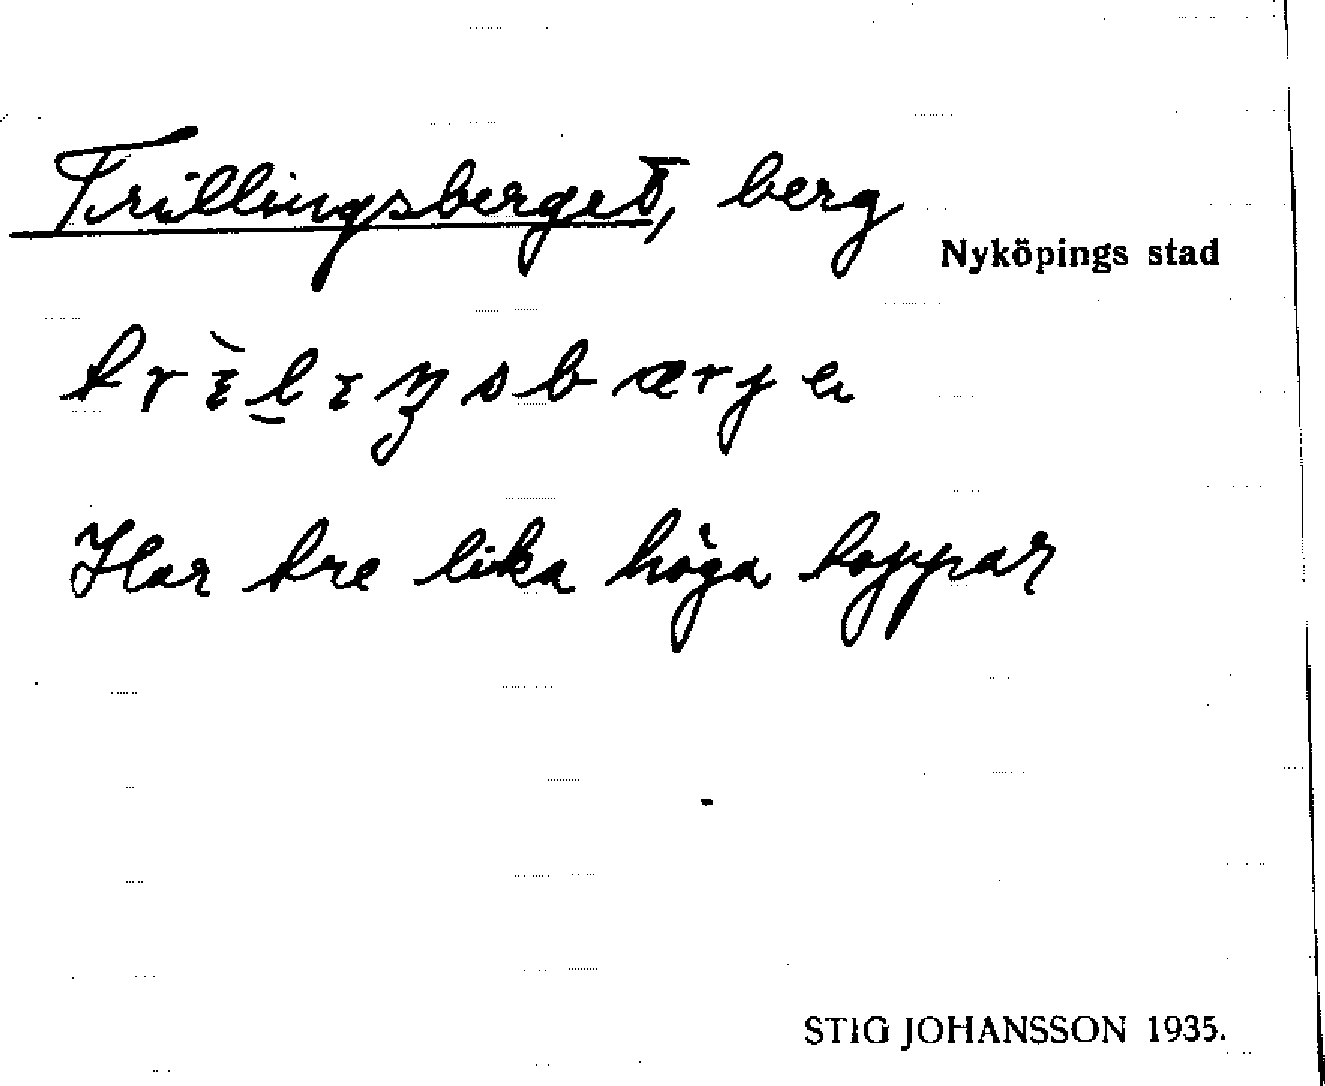 Trillingsberget, berg
Nyköpings stad
Har tre lika höga toppar
STIG JOHANSSON 1935.